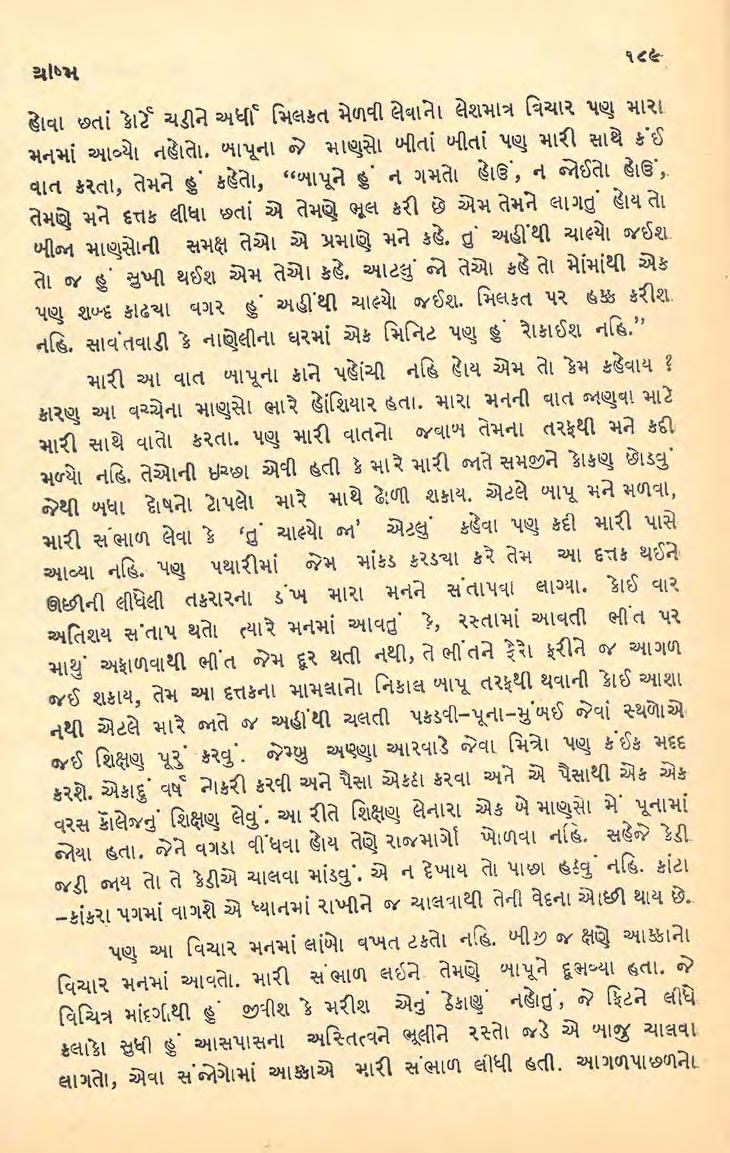 ૧૮૯
ગ્રીષ્મ
હોવા છતાં કોર્ટે ચડીને અર્ધી મિલકત મેળવી લેવાનો લેશમાત્ર વિચાર પણ મારા
મનમાં આવ્યો નહોતો. બાપૂના જે માણસો બીતાં બીતાં પણ મારી સાથે કંઈ
વાત કરતા, તેમને હું કહેતો, “બાપૂને હું ન ગમતો હોઉં, ન જોઈતો હોઉં,
તેમણે મને દત્તક લીધા છતાં એ તેમણે ભૂલ કરી છે એમ તેમને લાગતું હોય તો
બીજા માણસોની સમક્ષ તેઓ એ પ્રમાણે મને કહે. તું અહીંથી ચાલ્યો જઈશ
તો જ હું સુખી થઈશ એમ તેઓ કહે. આટલું જો તેઓ કહે તો મોંમાંથી એક
પણ શબ્દ કાઢયા વગર હું અહીંથી ચાલ્યો જઈશ. મિલકત પર હક્ક કરીશ
નહિ. સાવંતવાડી કે નાણેલીના ઘરમાં એક મિનિટ પણ હું રોકાઈશ નહિ.”
મારી આ વાત બાપૂના કાને પહોંચી નહિ હોય એમ તો કેમ કહેવાય ?
કારણ આ વચ્ચેના માણસો ભારે હોંશિયાર હતા. મારા મનની વાત જાણવા માટે
મારી સાથે વાતો કરતા. પણ મારી વાતનો જવાબ તેમના તરફથી મને કદી
મળ્યો નહિ. તેઓની ઇચ્છા એવી હતી કે મારે મારી જાતે સમજીને કોકણ છોડવું
જેથી બધા દોષનો ટોપલો મારે માથે ઢોળી શકાય. એટલે બાપૂ મને મળવા,
મારી સંભાળ લેવા કે ‘તું ચાલ્યો જા’ એટલું કહેવા પણ કદી મારી પાસે
આવ્યા નહિ. પણ પથારીમાં જેમ માંકડ કરડયા કરે તેમ આ દત્તક થઈને
ઊછીની લીધેલી તકરારના ડંખ મારા મનને સંતાપવા લાગ્યા. કોઈ વાર
અતિશય સંતાપ થતો ત્યારે મનમાં આવતું કે, રસ્તામાં આવતી ભીંત પર
માથું અફાળવાથી ભીંત જેમ દૂર થતી નથી, તે ભીંતને ફેરો ફરીને જ આગળ
જઈ શકાય, તેમ આ દત્તકના મામલાનો નિકાલ બાપૂ તરફથી થવાની કોઈ આશા
નથી એટલે મારે જાતે જ અહીંથી ચલતી પકડવી–પૂના–મુંબઈ જેવાં સ્થળોએ
જઈ શિક્ષણ પૂરું કરવું. જેમ્બુ અણ્ણા આરવાડે જેવા મિત્રો પણ કંઈક મદદ
કરશે. એકાદું વર્ષ નોકરી કરવી અને પૈસા એકઠા કરવા અને એ પૈસાથી એક એક
વરસ કૉલેજનું શિક્ષણ લેવું. આ રીતે શિક્ષણ લેનારા એક બે માણસો મેં પૂનામાં
જોયા હતા. જેને વગડા વીંધવા હોય તેણે રાજમાર્ગો ખોળવા નહિ. સહેજે કેડી
જડી જાય તો તે કેડીએ ચાલવા માંડવું. એ ન દેખાય તો પાછા હઠવું નહિ. કાંટા
–કાંકરા પગમાં વાગશે એ ધ્યાનમાં રાખીને જ ચાલવાથી તેની વેદના ઓછી થાય છે.
પણ આ વિચાર મનમાં લાંબો વખત ટકતો નહિ. બીજી જ ક્ષણે આક્કાનો
વિચાર મનમાં આવતો. મારી સંભાળ લઇને તેમણે બાપૂને દૂભવ્યા હતા. જે
વિચિત્ર માંદગીથી હું જીવીશ કે મરીશ એનું ઠેકાણું નહોતું, જે ફિટને લીધે
કલાકો સુધી હું આસપાસના અસ્તિત્વને ભૂલીને રસ્તો જડે એ બાજુ ચાલવા
લાગતો, એવા સંજોગોમાં આક્કાએ મારી સંભાળ લીધી હતી. આગળપાછળનો